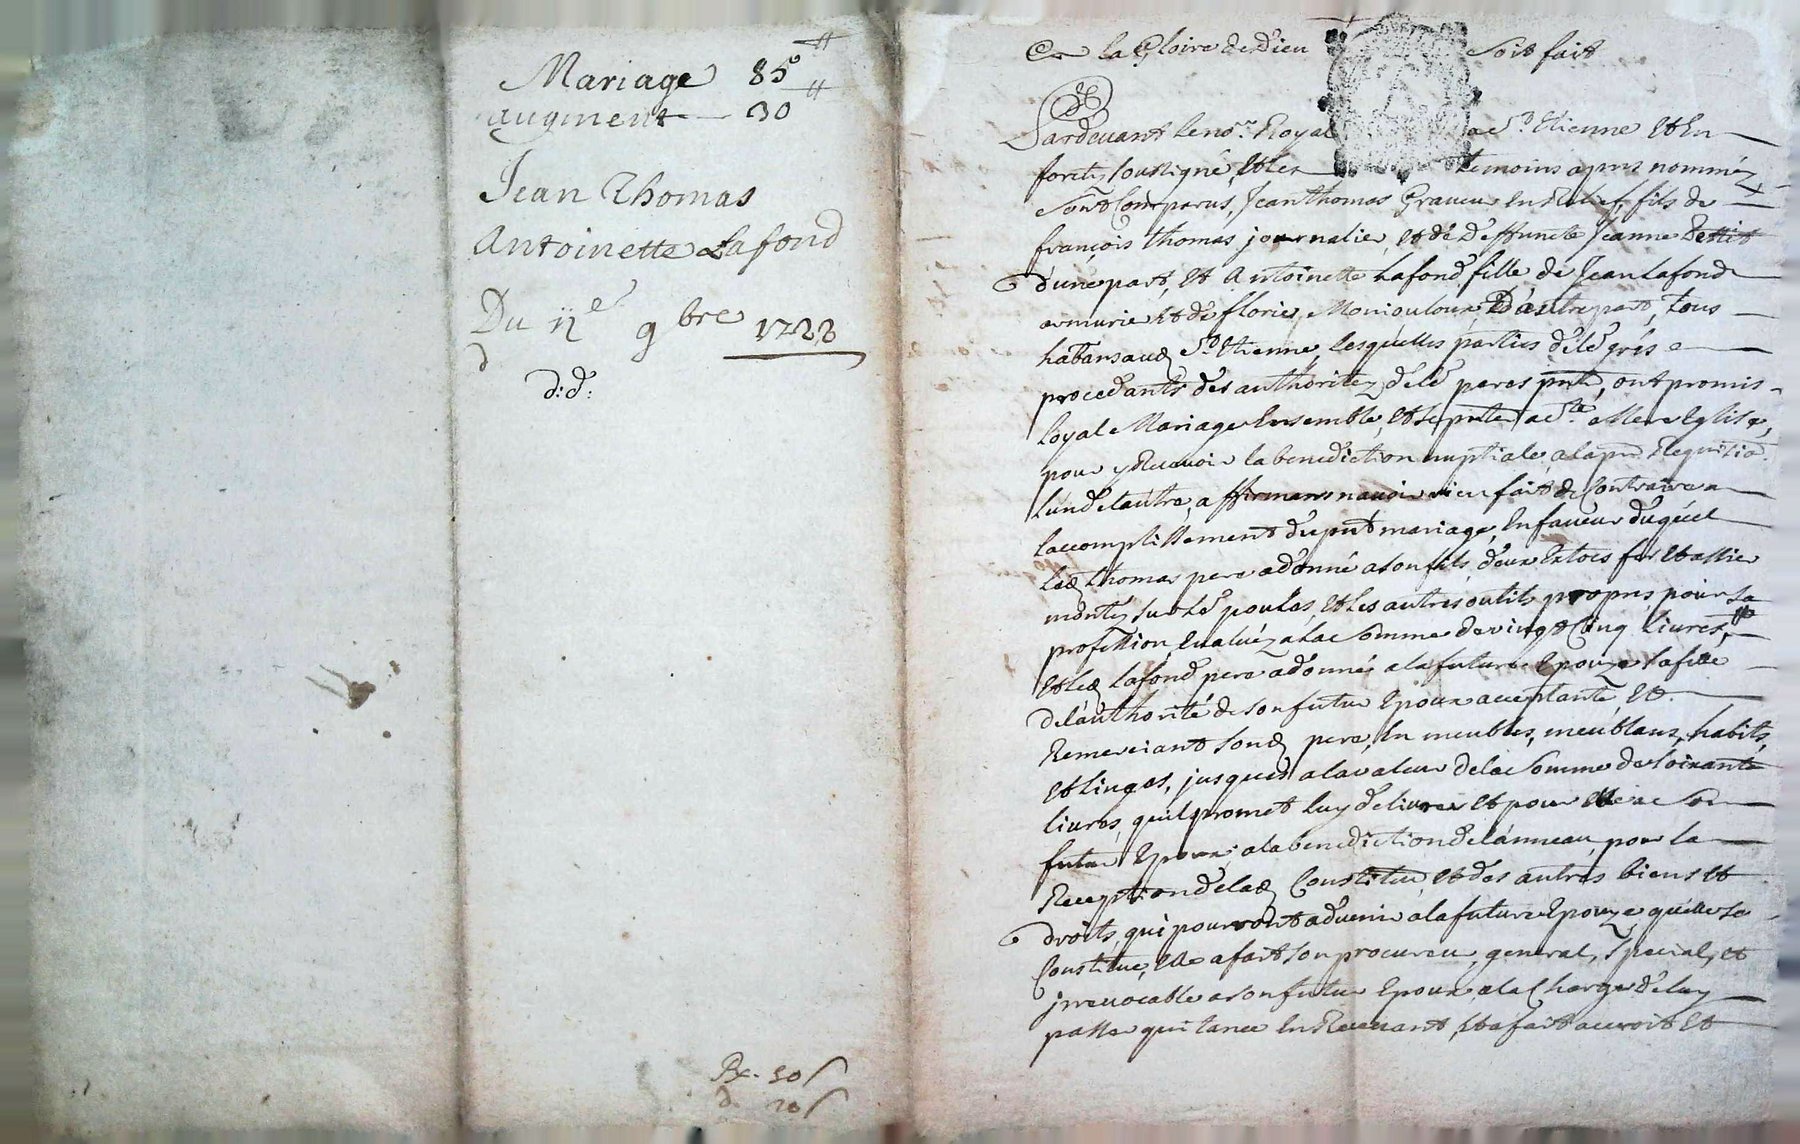 Mariage 85
augment 30
Jean Thomas
Antoinette Lafond
Du 9bre 1723
d: d:
20
En La Gloire de Dieu soit fait
Pardevant le nore Royal a St Etienne Et En
forets soussigné, Et les temoins apres nommez
Sont Comparus, Jean thomas Graveur En Relief, fils de
françois thomas journalie, et de deffuncte Jeanne
d'une part, Et Antoinette Lafond fille de Jean Lafond
armurie Et de florie D'autre part, tous
habitans aud St Etienne, lesquelles parties de lé grés
procedants des authoritez de lé peres pnts, ont promis
Loyal Mariage Ensemble, Et se pnter a cte a Mere Eglise,
pour y Recevoir la benediction nuptiale, a la pre Requision
Lun de lautre, affirmans navoir rien fait de Contraire a
laccomplissement du pnt mariage, En faveur duquel
led thomas pere a donné a son fils, deux Estocs
montés sur Et les autres outils propres pour sa
profession, Evaluéz a la Somme de vingt Cinq livres,
Et led Lafond pere a donné a la future Epouze sa fille
de lauthorité de son futur Epoux acceptante, Et
Remerciant sond pere, En meubles, meublans, habits,
Et linges, jusques a la valeur de la Somme de soixante
livres, quil promet luy delivrer Et pour Elle a Son
futur Epoux, a la benediction de lanneau, pour la
Reception de lad Constitue, et des autres biens et
droits, qui pourront advenir a la future Epouze quelle se
Constitue, Elle a fait son procureur, general, special, et
irrevocable a son futur Epoux, a la Charge de luy
passer quitance En Recevant, Et a fait accroit Et